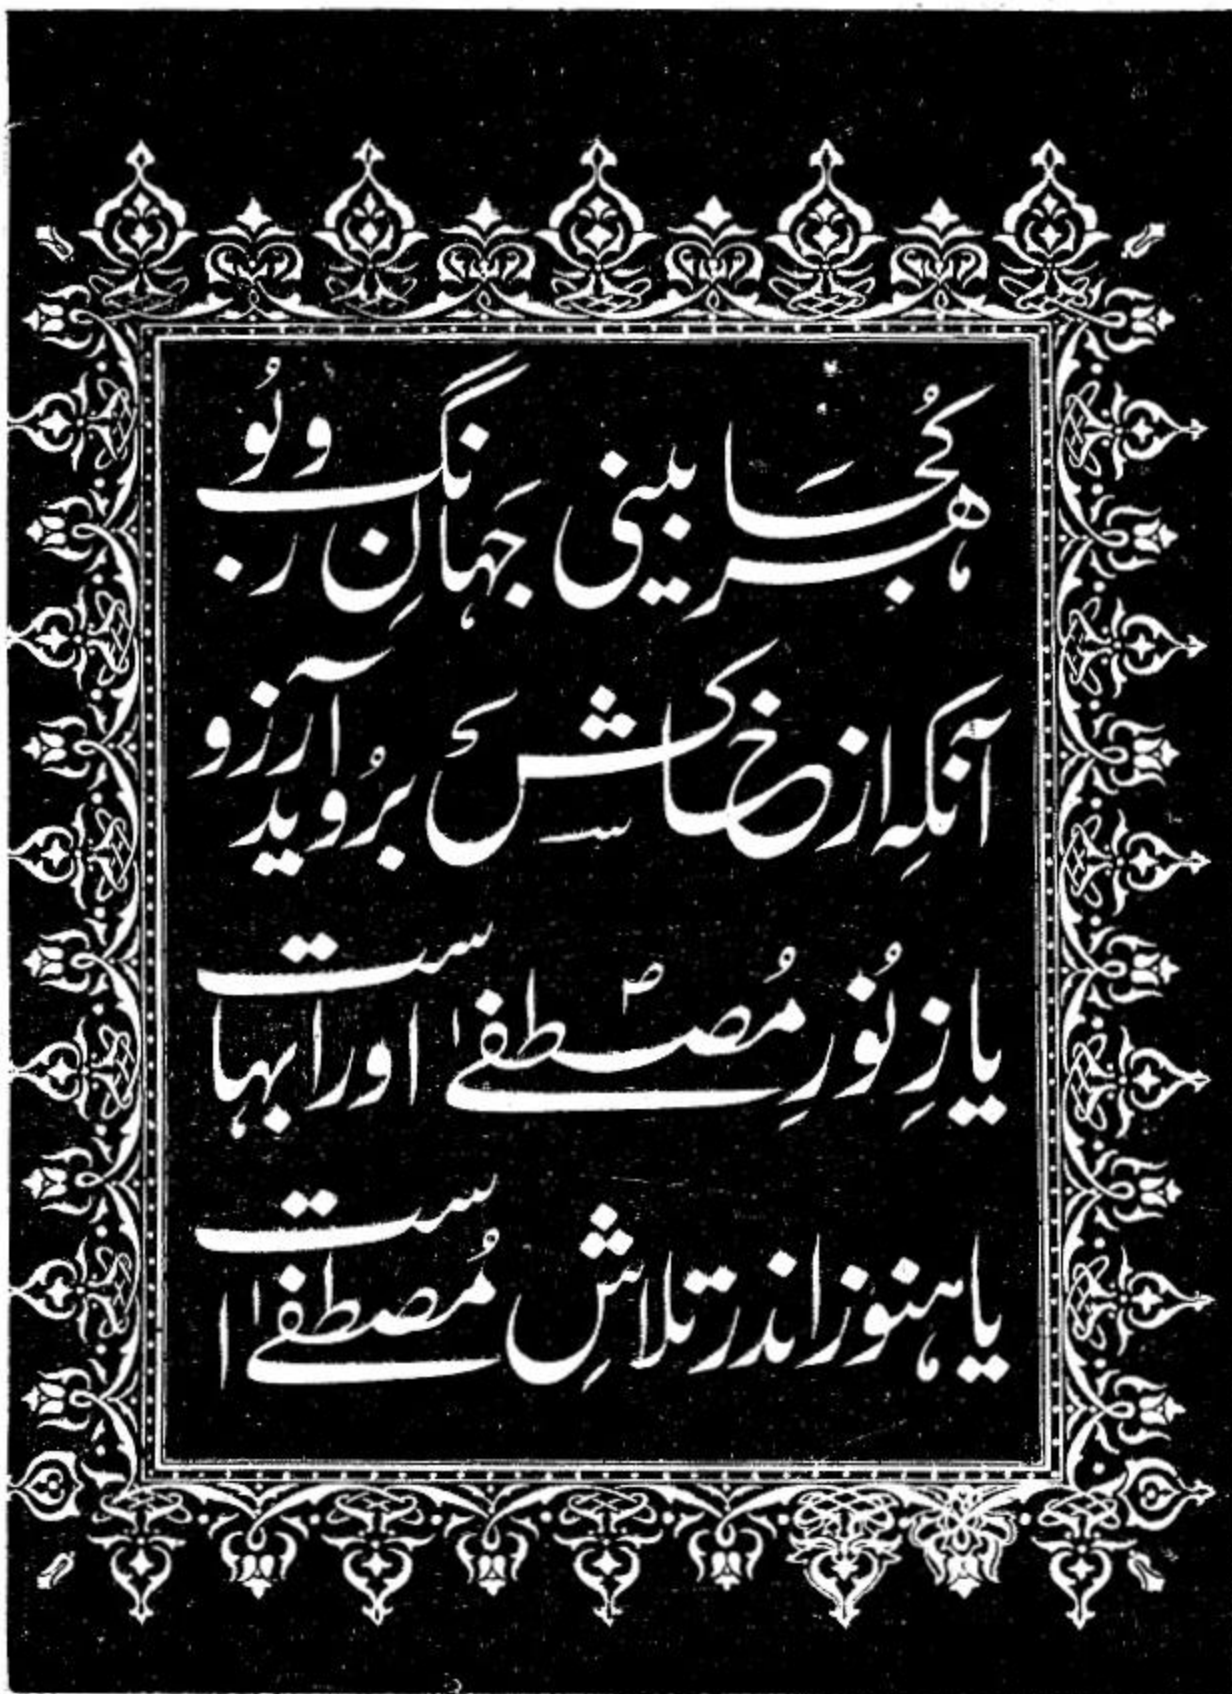 ہر کُجَا بینی جَہانِ رنگ و بُو
آنکِہ از خاکش بِرُوید آرزو
یا زِ نُورِ مُصطفےٰؐ او را بہاست
یا ہنوز اندر تلاشِ مُصطفےٰ است